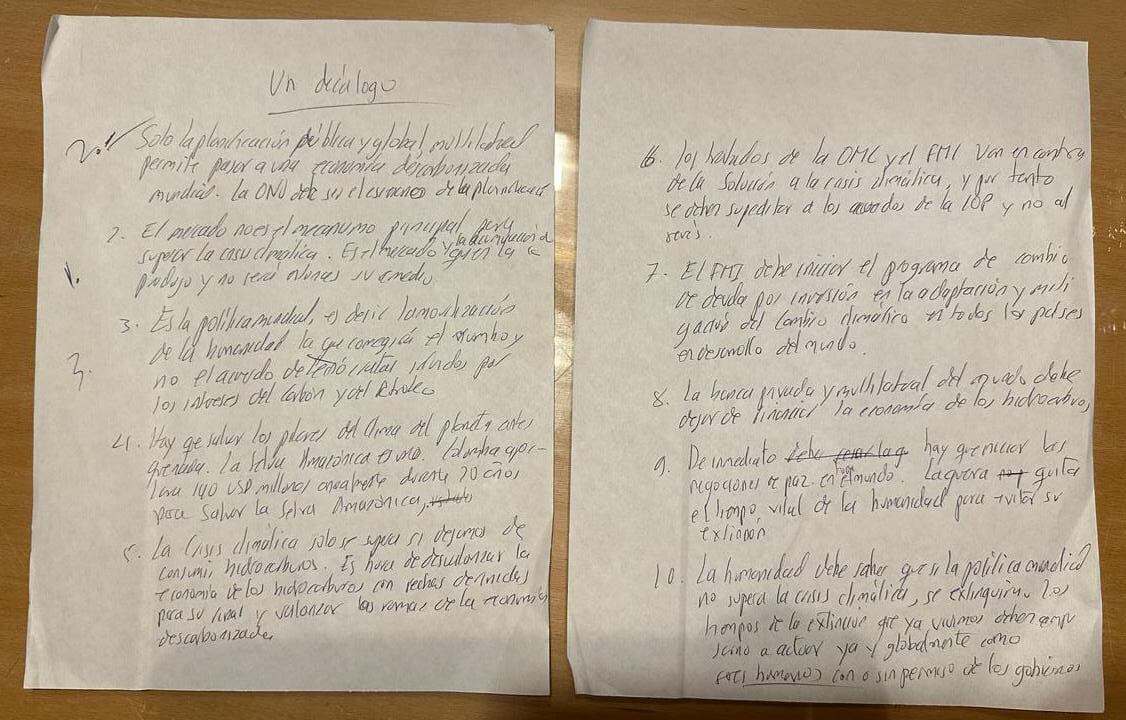 Un decálogo
2. Solo la planificación pública y global, multilateral
permite pasar a una economía descarbonizada
mundial. La ONU debe ser el escenario de la planificación
2. El mercado no es el mecanismo principal para
superar la crisis climática. Es el mercado y la acumulación de
1. produjo y no será nunca su remedio
3. Es la política mundial, es decir la movilización
de la humanidad la que conseguirá el rumbo y
3. no el acuerdo de tecnócratas influidos por
los intereses del carbón y del petróleo
4. Hay que salvar los pilares del clima del planeta antes
que nada. La selva Amazónica es uno. Colombia apor-
tara 140 USD millones anualmente durante 20 años
para salvar la selva Amazónica,
5. La crisis climática solo se supera si dejamos de
consumir hidrocarburos. Es hora de desvalorizar la
economía de los hidrocarburos con fechas definidas
para su final y valorizar las ramas de la economía
descarbonizada
6. los tratados de la OMC y el FMI van en contra
de la solución a la crisis climática, y por tanto
se deben supeditar a los acuerdos de la COP y no al
revés.
7. El FMI debe iniciar el programa de cambio
de deuda por inversión en la adaptación y miti
gación del cambio climático en todos los países
en desarrollo del mundo.
8. La banca privada y multilateral del mundo debe
dejar de financiar la economía de los hidrocarburos
9. De inmediato hay que iniciar las
negociaciones de paz en el mundo. La guerra quita
el tiempo vital de la humanidad para evitar su
extinción
10. La humanidad debe saber que si la política mundial
no supera la crisis climática, se extinguirá. Los
tiempos de la extinción que ya vivimos deben
a actuar ya y globalmente como
seres humanos con o sin permiso de los gobiernos